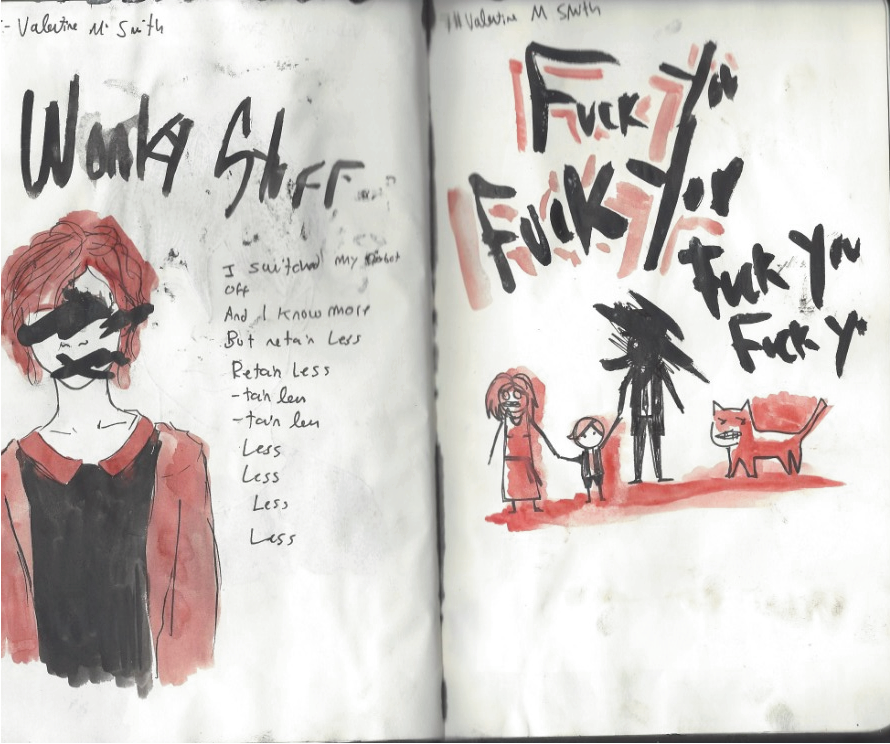 - Valentine M. Smith
Wonky Stuff
I switched my robot
off
And I know more
But retain Less
Retain Less
-tain len
-tain len
Less
Less
Less
Less
Valentine M Smith
Fuck You
Fuck You
Fuck You
Fuck Y